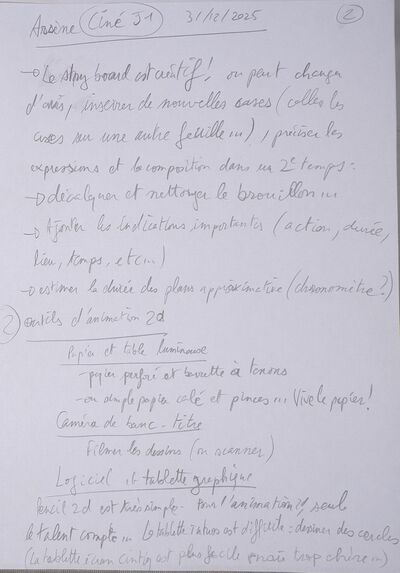 Arsène Ciné J1 31/12/2025 2
→ Le story board est créatif ! on peut changer
d'avis, inserer de nouvelles cases (collez les
cases sur une autre feuille ...), préciser les
expressions et la composition dans un 2e temps.
→ décalquer et nettoyer le brouillon ...
→ Ajouter les indications importantes (action, durée,
lieu, temps, etc ...)
→ estimer la durée des plans approximative (chronomètre ?)
2 outils d'animation 2d
Papier et table lumineuse
- papier perforé et barrette à tenons
- ou simple papier calé et pinces ... Vive le papier !
Caméra de banc-titre
Filmer les dessins (ou scanner)
Logiciel et tablette graphique
Pencil 2d est très simple. Pour l'animation 2d, seul
le talent compte ... La tablette intuos est difficile : dessiner des cercles
(La tablette icran cintiq est plus facile mais trop chère ...)